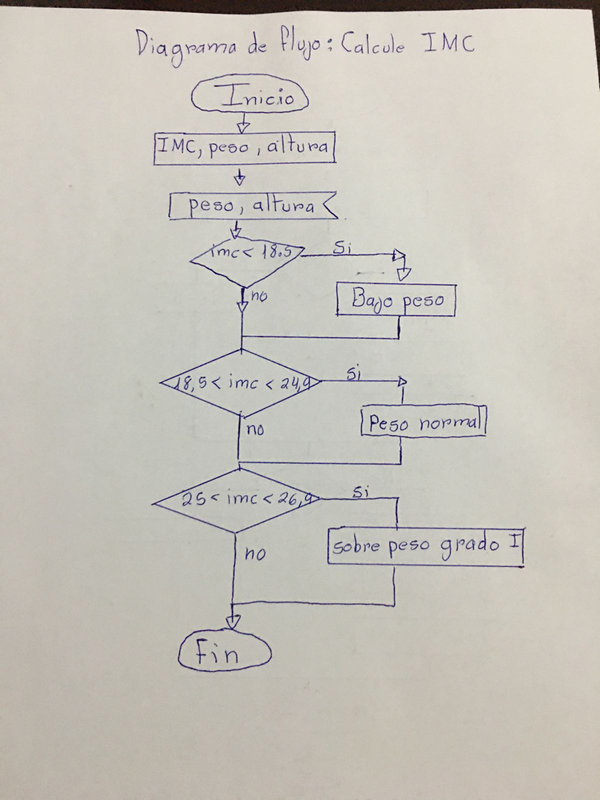 Diagrama de flujo: Calcule IMC
Inicio
IMC, peso, altura
peso, altura
imc < 18.5
Si
no
Bajo peso
18,5 < imc < 24,9
Si
no
Peso normal
25 < imc < 26,9
Si
no
sobre peso grado I
Fin